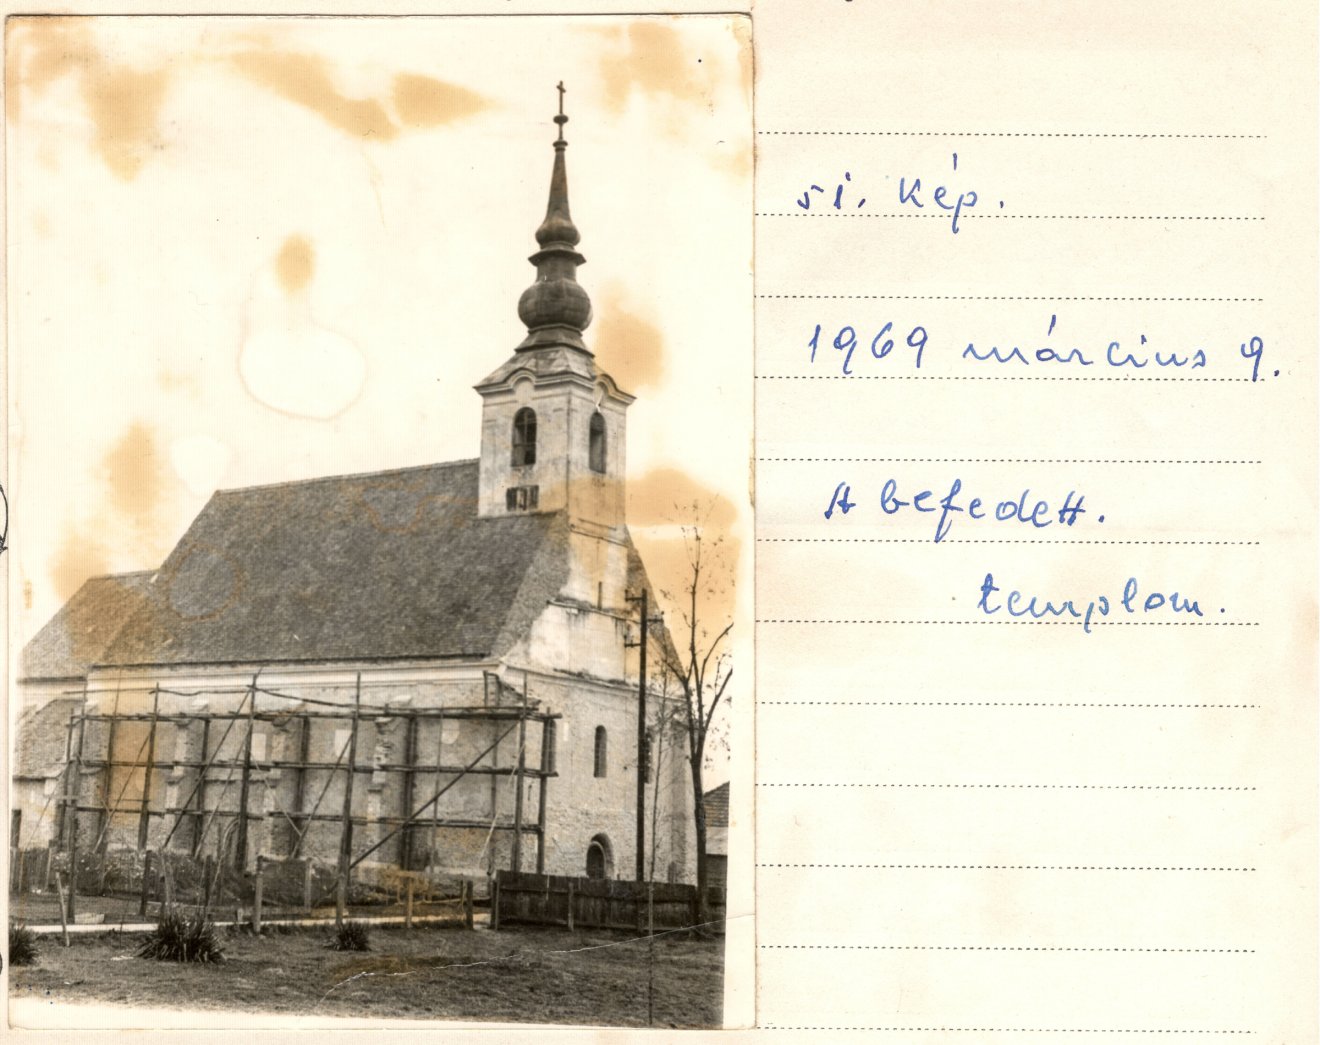 51. kép.
1969 március 9.
A befedett.
templom.